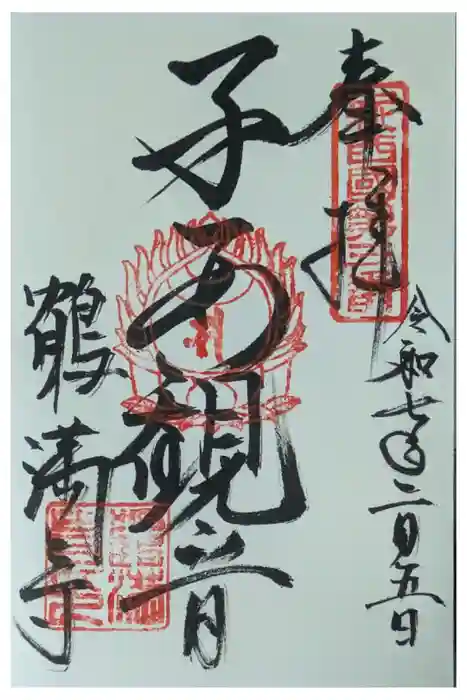 奉拝
令和七年二月五日
子安観音
鶴満寺